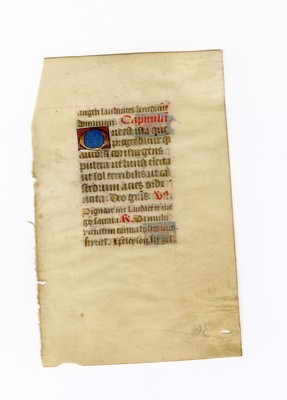 angeli laudantes benedicūt
dominum. Capitulū
Que est ista que
progreditur q̄
aurora consurgens
pulcra ut luna electa
ut sol terribilis ut ca
strorum acies ordi
nata. Deo grās. V̄s.
Dignare me laudare te vir
go sacrata. R. Da michi
virtutem contra hostes tuos
kyriel. Xp̄eleyson. kyriel.